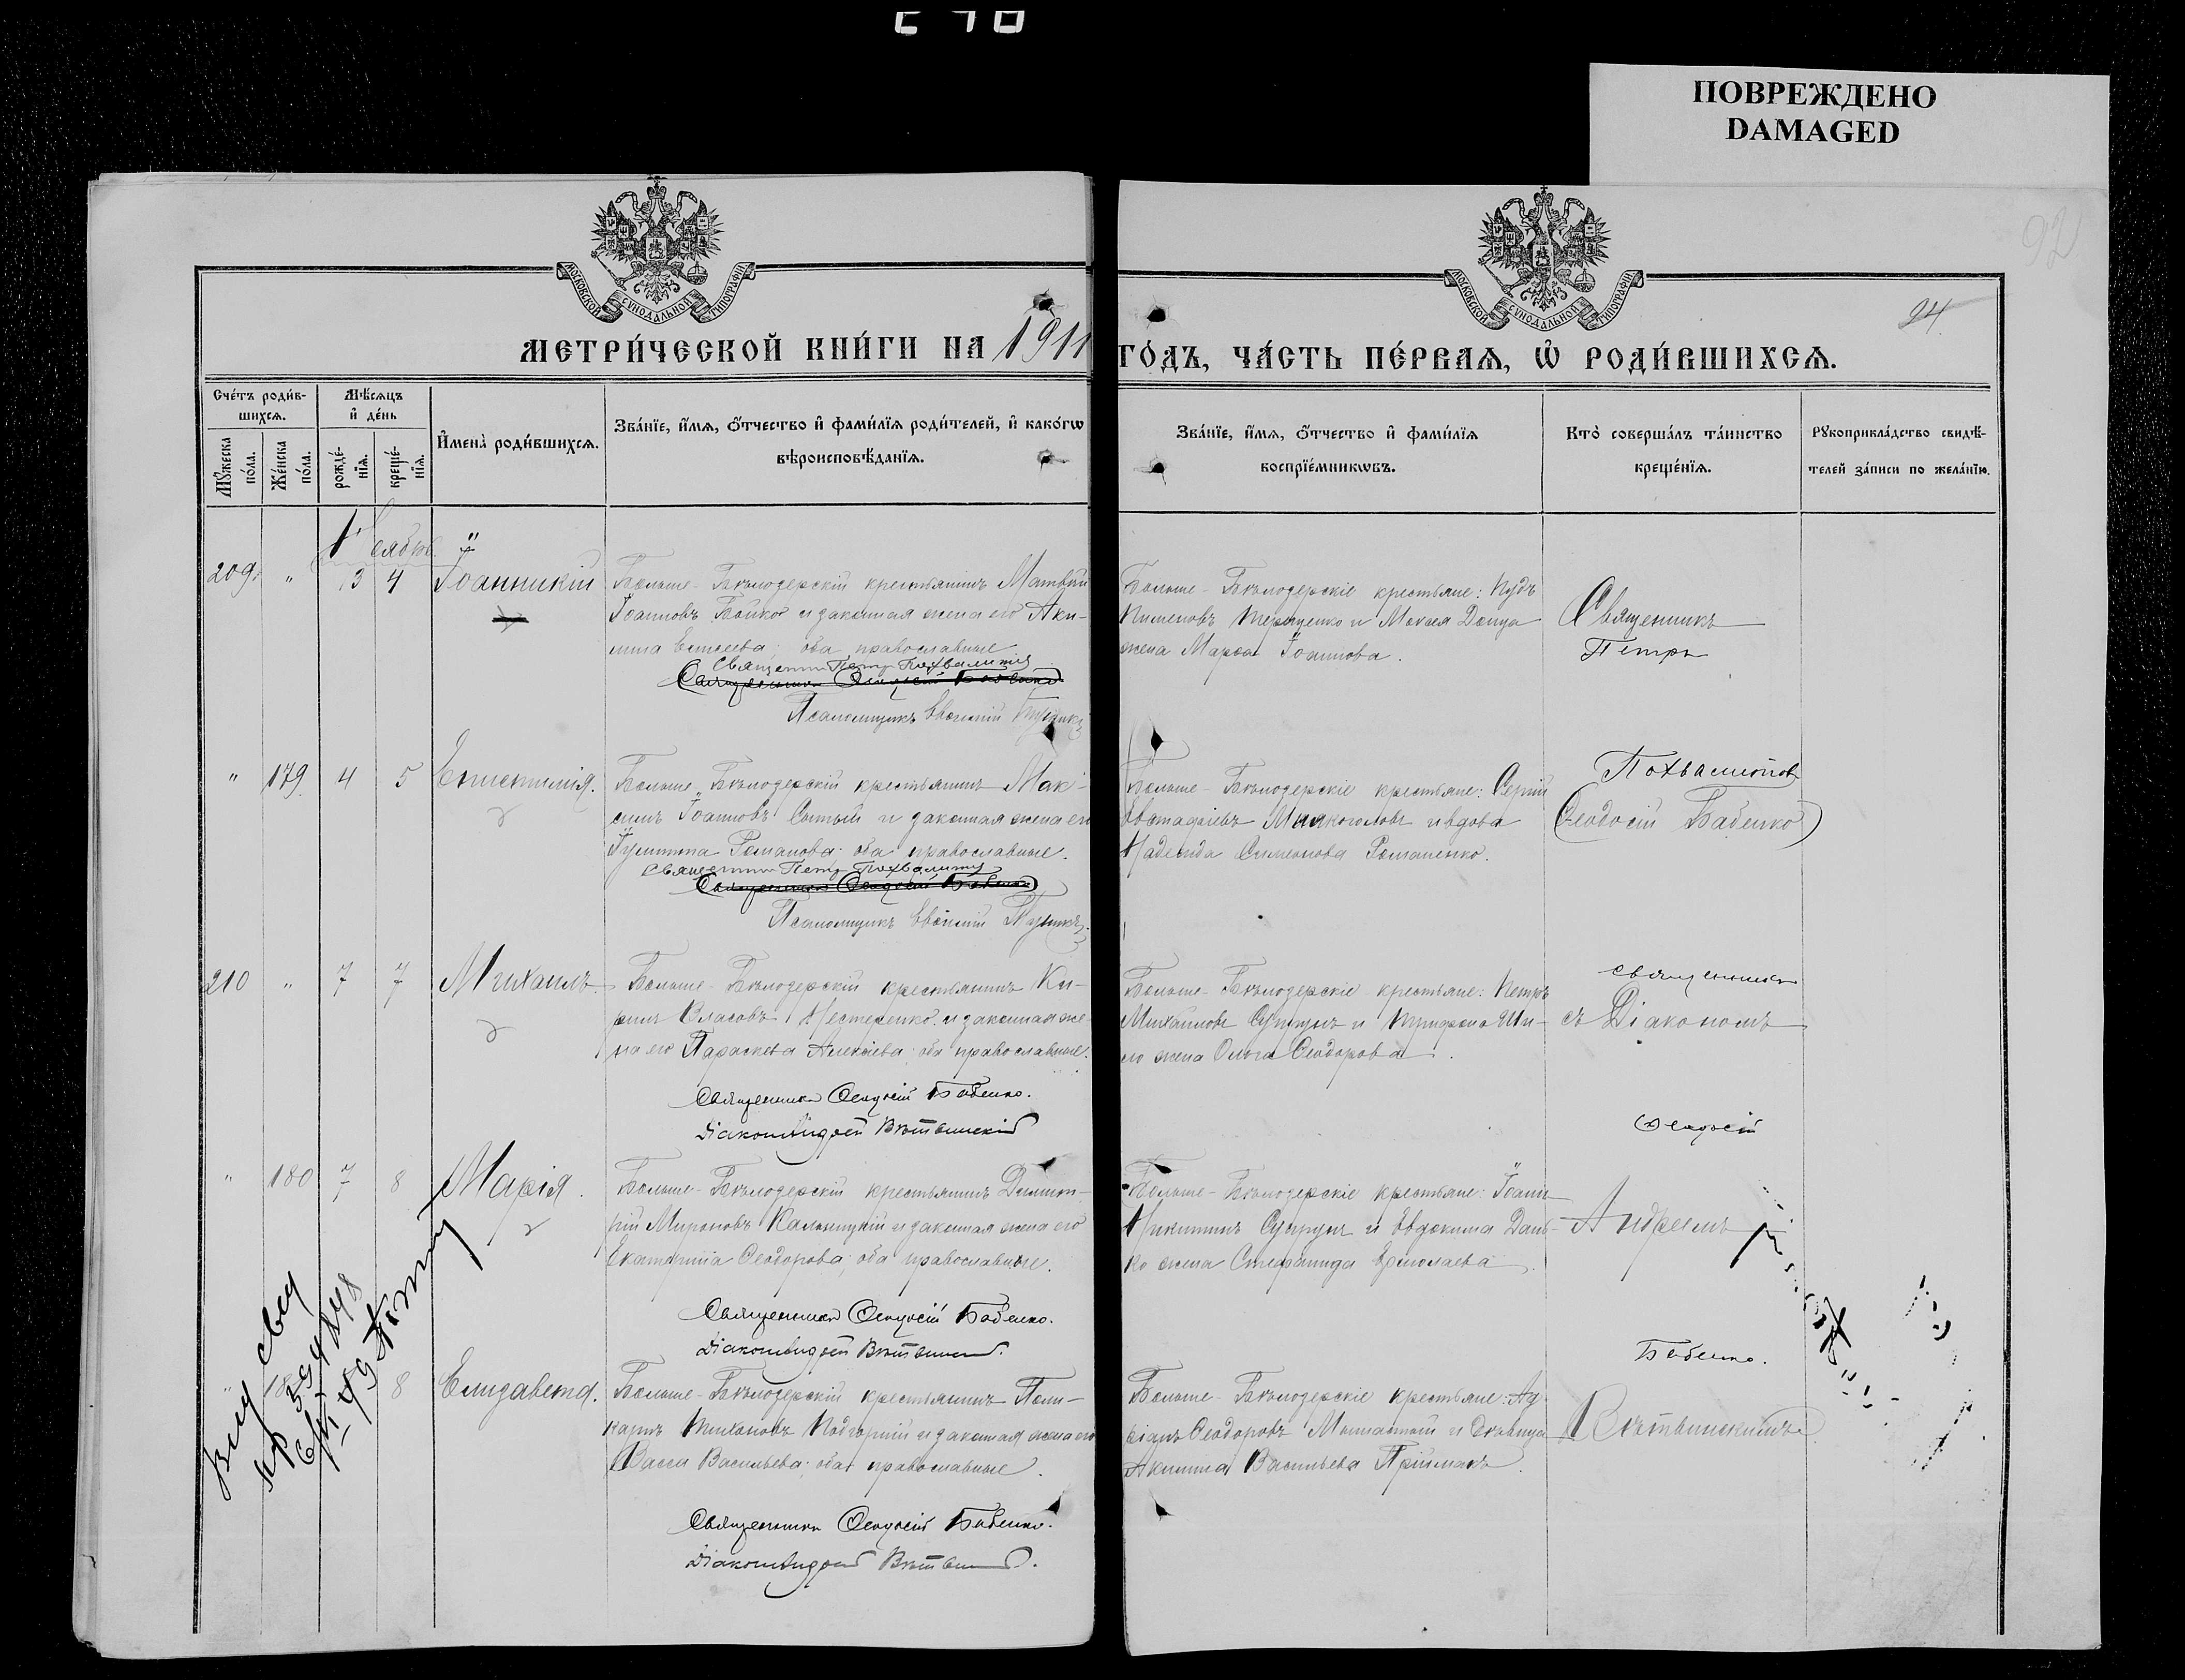 ПОВРЕЖДЕНО
DAMAGED
МОСКОВСКОЙ СѴНОДАЛЬНОЙ ТИПОГРАФІИ
МОСКОВСКОЙ СѴНОДАЛЬНОЙ ТИПОГРАФІИ
92
94
МЕТРИ́ЧЕСКОЙ КНИ́ГИ НА 1911
ГО́ДЪ, ЧА́СТЬ ПЕ́РВАѦ, Ѡ҆ РОДИ́ВШИХСѦ.
Сче́тъ роди́в-
шихсѧ.
Мѣ́сѧцъ
и҆ де́нь
Мꙋ́жеска
по́ла.
Же́нска
по́ла.
рожде́-
нїѧ.
креще́-
нїѧ.
И҆мена̀ роди́вшихсѧ.
Зва́нїе, и҆́мѧ, ѻ҆́тчество и҆ фами́лїѧ роди́телей, и҆ како́гѡ
вѣроисповѣ́данїѧ.
Зва́нїе, и҆́мѧ, ѻ҆́тчество и҆ фами́лїѧ
воспрїе́мникѡвъ.
Кто̀ соверша́лъ та́инство
креще́нїѧ.
Рꙋкоприкла́дство свидѣ́-
телей за́писи по жела́нїю.
Ноябрь
209 " 3 4 Іоанникій
Больше-Бѣлозерскій крестьянинъ Матвѣй
Іоанновъ Бойко и законная жена его Аки-
лина Евсеева; оба православные.
Священникъ Петръ Похвалитовъ
Священникъ Ѳеодосій Бабенко
Псаломщикъ Евѳимій
Больше-Бѣлозерскіе крестьяне: Пудъ
Пименовъ Терещенко и Моисея Донца
жена Марѳа Іоаннова.
Священникъ
Петръ
" 179 4 5 Епистимія.
Больше-Бѣлозерскій крестьянинъ Мак-
симъ Іоанновъ Сытый и законная жена его
Іулитта Романова; оба православные.
Священникъ Петръ Похвалитовъ
Священникъ Ѳеодосій Бабенко
Псаломщикъ Евѳимій
Больше-Бѣлозерскіе крестьяне: Сергій
Евстафіевъ Мякоголовъ и вдова
Надежда Симеонова Романенко.
Похвалитовъ
Ѳеодосій Бабенко
210 " 7 7 Михаилъ
Больше-Бѣлозерскій крестьянинъ Ки-
риллъ Власовъ Нестеренко и законная же-
на его Параскева Алексіева; оба православные.
Священникъ Ѳеодосій Бабенко.
Діаконъ Андрей Вѣтвинскій
Больше-Бѣлозерскіе крестьяне: Петръ
Михайловъ Супрунъ и Трифона Ши-
ло жена Ольга Ѳеодорова.
Священникъ
съ Діакономъ
Ѳеодосій
" 180 7 8 Марія.
Больше-Бѣлозерскій крестьянинъ Димит-
рій Мироновъ Кальницкій и законная жена его
Екатерина Ѳеодорова; оба православные.
Священникъ Ѳеодосій Бабенко.
Діаконъ Андрей Вѣтвинскій.
Больше-Бѣлозерскіе крестьяне: Іоаннъ
Никитинъ Супрунъ и Евдокима Дань-
ко жена Стефанида Ермолаева.
Андреемъ
Бабенко.
8 Елизавета.
Больше-Бѣлозерскій крестьянинъ Поли-
карпъ Тихоновъ Подгорній и законная жена его
Васса Васильева; оба православные.
Священникъ Ѳеодосій Бабенко.
Діаконъ Андрей Вѣтвинскій.
Больше-Бѣлозерскіе крестьяне: Ад-
ріанъ Ѳеодоровъ и дѣвица
Акилина Васильева Пріймакъ.
Вѣтвинскимъ